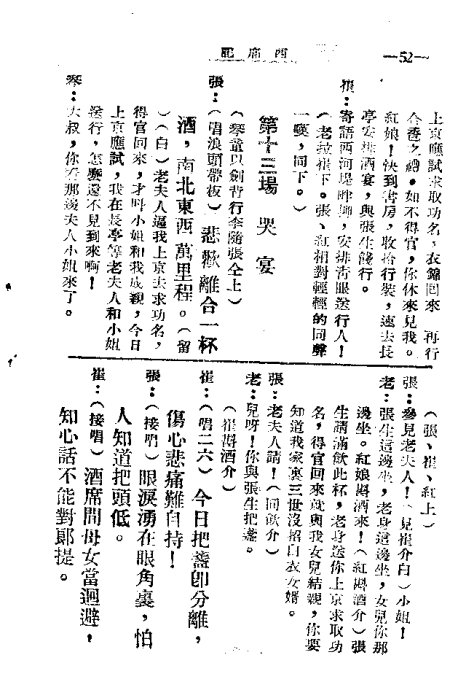 —52—
西廂記
上京應試求取功名，衣錦回來 再行
合卺之禮。如不得官，你休來見我。
紅娘！快到書房，收拾行裝，速去長
亭安排酒宴，與張生餞行。
崔：寄語西河堤畔柳，安排靑眼送行人！
（老拉崔下。張、紅相對輕輕的同聲
一嘆，同下。）
第十三場 哭宴
（琴童以劍背行李隨張仝上）
張：（唱浪頭帶板）悲歡離合一杯
酒，南北東西萬里程。（留
）（白）老夫人逼我上京去求功名，
得官回來，才叫小姐和我成親，今日
上京應試，我在長亭等老夫人和小姐
送行，怎麼還不見到來啊！
琴：大叔，你看那邊夫人小姐來了。
（張、崔、紅上）
張：參見老夫人！（見崔介白）小姐！
老：張生這邊坐，老身這邊坐，女兒你那
邊坐。紅娘斟酒來！（紅斟酒介）張
生請滿飲此杯，老身送你上京求取功
名，得官回來就與我女兒結親，你要
知道我家裏三世沒招白衣女婿。
張：老夫人請！（同飲介）
老：兒呀！你與張生把盞。
（崔斟酒介）
崔：（唱二六）今日把盞卽分離，
傷心悲痛難自持！
張：（接唱）眼淚湧在眼角裏，怕
人知道把頭低。
崔：（接唱）酒席間母女當迴避，
知心話不能對郞提。